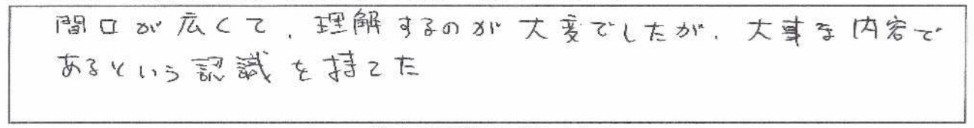 間口が広くて、理解するのが大変でしたが、大事な内容で
あるという認識を持てた